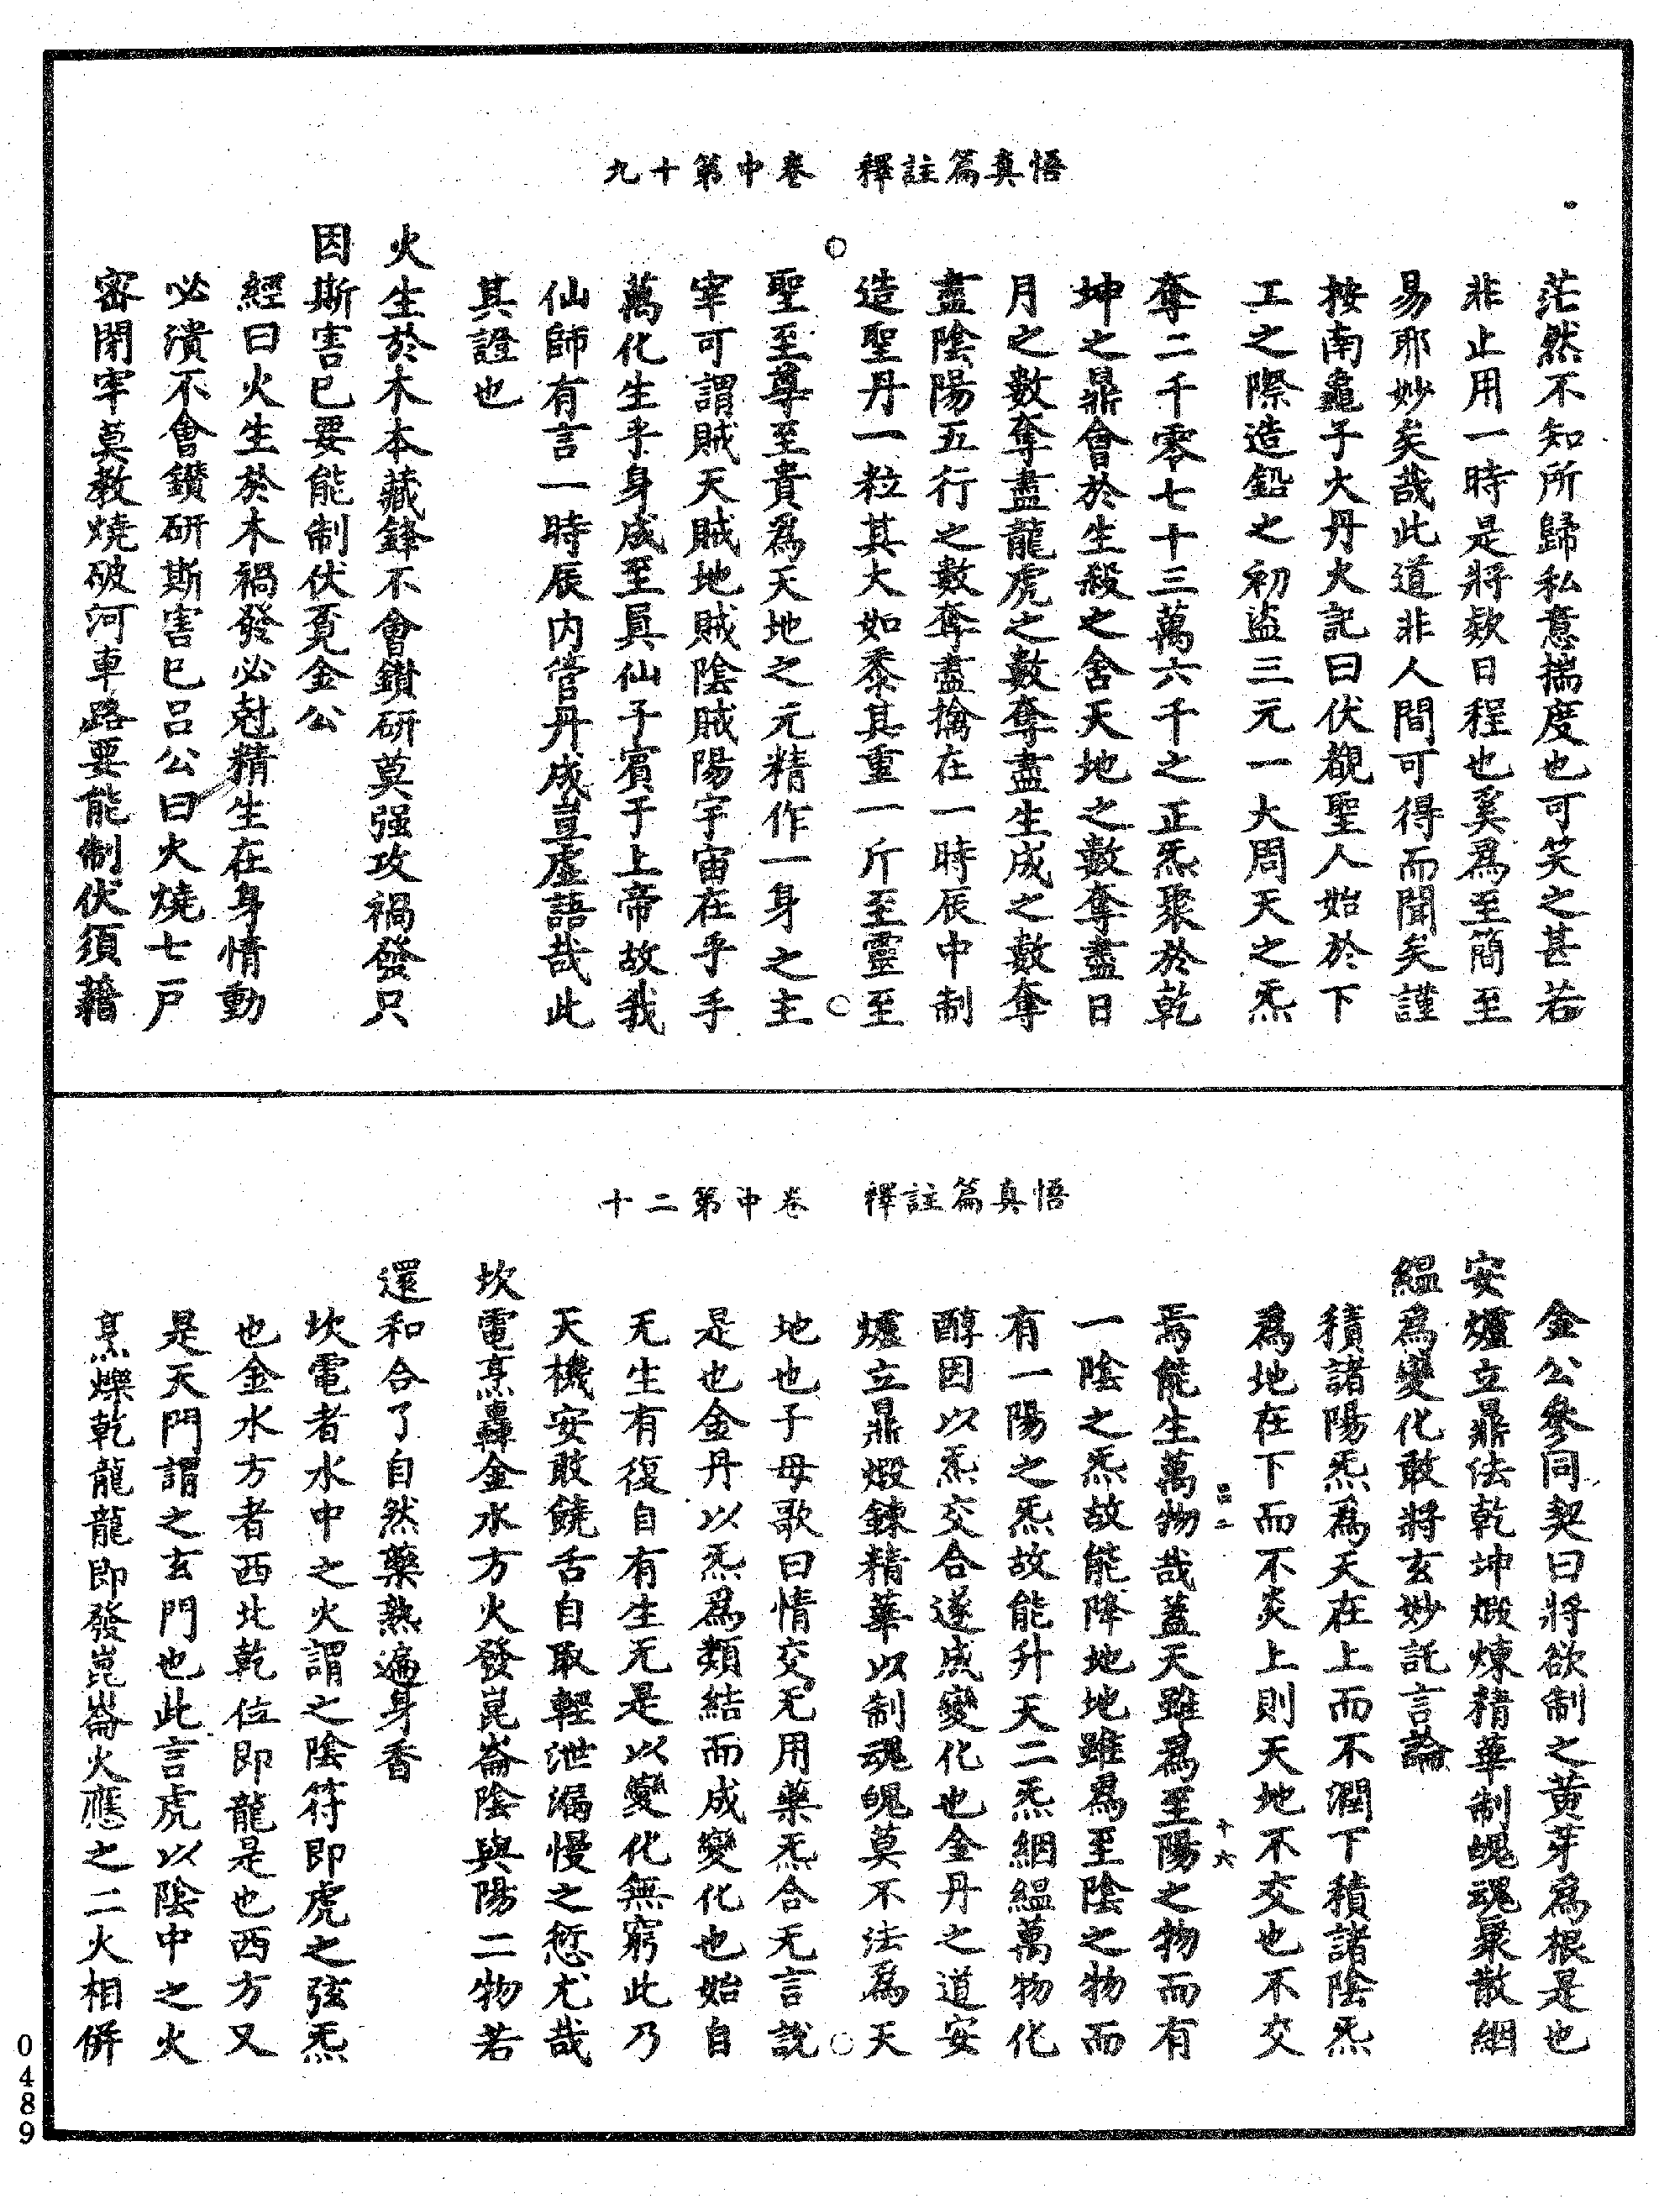 悟真篇註釋 卷中第十九
茫然不知所歸私意揣度也可笑之甚若
非止用一時是將欸日程也奚爲至簡至
易耶妙矣哉此道非人間可得而聞矣謹
按南龜子火丹火記曰伏覩聖人始於下
工之際造鉛之初盜三元一大周天之炁
奪二千零七十三萬六千之正炁聚於乾
坤之鼎會於生殺之舍天地之數奪盡日
月之數奪盡龍虎之數奪盡生成之數奪
盡陰陽五行之數奪盡擒在一時辰中制
造聖丹一粒其大如黍其重一斤至靈至
聖至尊至貴爲天地之元精作一身之主
宰可謂賊天賊地賊陰賊陽宇宙在乎手
萬化生乎身成至眞仙子賓于上帝故我
仙師有言一時辰內管丹成豈虛語哉此
其證也
火生於木本藏鋒不會鑽研莫强攻禍發只
因斯害已要能制伏覔金公
經曰火生於木禍發必尅精生在身情動
必潰不會鑽研斯害已呂公曰火燒七戶
密閉牢莫教燒破河車路要能制伏須藉
悟真篇註釋 卷中第二十
金公參同契曰將欲制之黃芽爲根是也
安爐立鼎法乾坤煅煉精華制魄魂聚散絪
緼爲變化敢將玄妙託言論
積諸陽炁爲天在上而不潤下積諸陰炁
爲地在下而不炎上則天地不交也不交
焉能生萬物哉蓋天雖爲至陽之物而有
一陰之炁故能降地地雖爲至陰之物而
有一陽之炁故能升天二炁絪緼萬物化
醇因以炁交合遂成變化也金丹之道安
爐立鼎煅鍊精華以制魂魄莫不法爲天
地也子母歌曰情交无用藥炁合无言說
是也金丹以炁爲類結而成變化也始自
无生有復自有生无是以變化無窮此乃
天機安敢饒舌自取輕泄漏慢之愆尤哉
坎電烹轟金水方火發崑崙陰與陽二物若
還和合了自然藥熟遍身香
坎電者水中之火謂之陰符即虎之弦炁
也金水方者西北乾位即龍是也西方又
是天門謂之玄門也此言虎以陰中之火
烹爍乾龍龍即發崑崙火應之二火相併
十六
0489